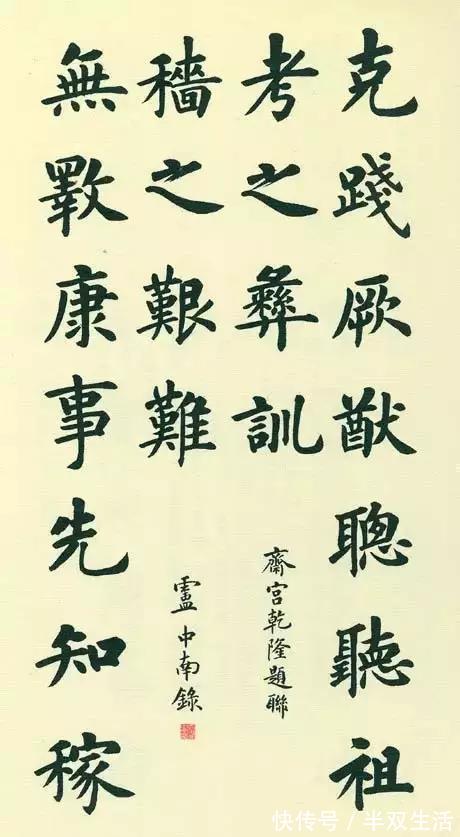 克踐厥猷聰聽祖
考之彝訓
齋宮乾隆題聯
無斁康事先知稼
穡之艱難
盧中南錄
快传号/半双生活